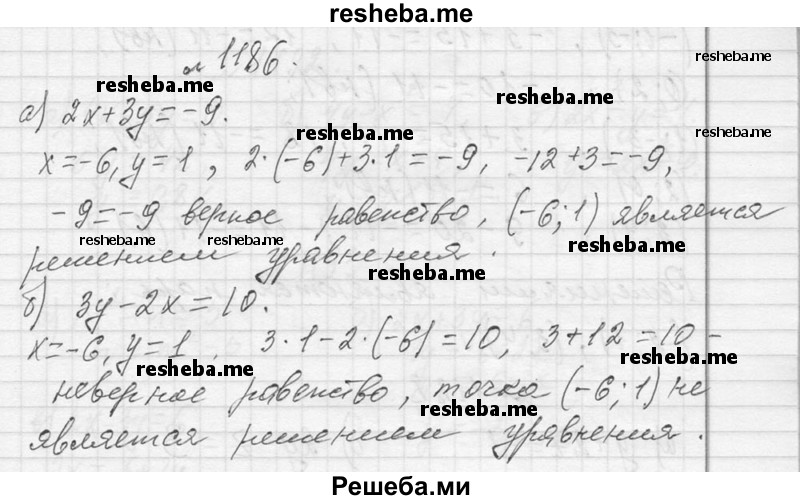 resheba.me
№ 1186.
resheba.me
resheba.me
resheba.me
а) 2x+3y=-9.
resheba.me
resheba.me
x=-6, y=1, 2·(-6)+3·1=-9, -12+3=-9,
-9=-9 верное равенство, (-6;1) является
resheba.me resheba.me resheba.me
решением уравнения.
resheba.me
б) 3y-2x=10.
x=-6, y=1, 3·1-2·(-6)=10, 3+12=10 -
resheba.me resheba.me
неверное равенство, точка (-6;1) не
resheba.me
является решением уравнения.
Решеба.ми